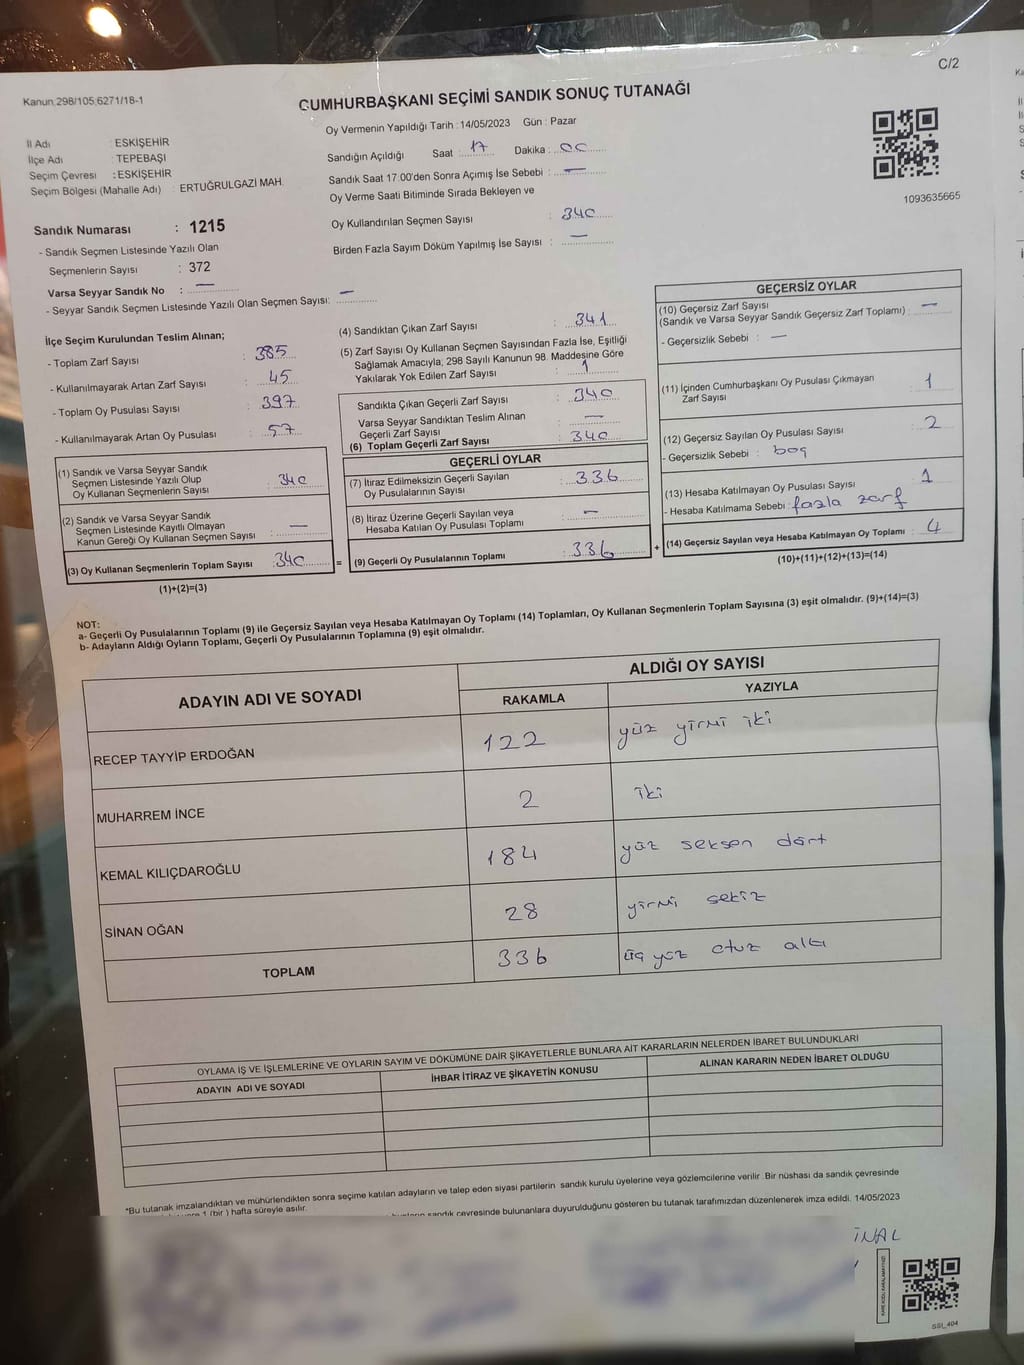 C/2
Kanun 298/105,6271/18-1
CUMHURBAŞKANI SEÇİMİ SANDIK SONUÇ TUTANAĞI
Oy Vermenin Yapıldığı Tarih : 14/05/2023 Gün : Pazar
İl Adı : ESKİŞEHİR
İlçe Adı : TEPEBAŞI
Seçim Çevresi : ESKİŞEHİR
Seçim Bölgesi (Mahalle Adı) : ERTUĞRULGAZİ MAH.
Sandık Numarası : 1215
- Sandık Seçmen Listesinde Yazılı Olan
Seçmenlerin Sayısı : 372
Varsa Seyyar Sandık No : —
- Seyyar Sandık Seçmen Listesinde Yazılı Olan Seçmen Sayısı: —
Sandığın Açıldığı Saat : 17 Dakika : 00
Sandık Saat 17:00'den Sonra Açımış İse Sebebi : —
Oy Verme Saati Bitiminde Sırada Bekleyen ve
Oy Kullandırılan Seçmen Sayısı : 340
Birden Fazla Sayım Döküm Yapılmış İse Sayısı : —
1093635665
İlçe Seçim Kurulundan Teslim Alınan;
- Toplam Zarf Sayısı : 385
- Kullanılmayarak Artan Zarf Sayısı : 45
- Toplam Oy Pusulası Sayısı : 397
- Kullanılmayarak Artan Oy Pusulası : 57
(1) Sandık ve Varsa Seyyar Sandık
Seçmen Listesinde Yazılı Olup
Oy Kullanan Seçmenlerin Sayısı : 340
(2) Sandık ve Varsa Seyyar Sandık
Seçmen Listesinde Kayıtlı Olmayan
Kanun Gereği Oy Kullanan Seçmen Sayısı : —
(3) Oy Kullanan Seçmenlerin Toplam Sayısı : 340
(1)+(2)=(3)
(4) Sandıktan Çıkan Zarf Sayısı : 341
(5) Zarf Sayısı Oy Kullanan Seçmen Sayısından Fazla İse, Eşitliği
Sağlamak Amacıyla; 298 Sayılı Kanunun 98. Maddesine Göre
Yakılarak Yok Edilen Zarf Sayısı : 1
Sandıkta Çıkan Geçerli Zarf Sayısı : 340
Varsa Seyyar Sandıktan Teslim Alınan
Geçerli Zarf Sayısı : —
(6) Toplam Geçerli Zarf Sayısı : 340
GEÇERLİ OYLAR
(7) İtiraz Edilmeksizin Geçerli Sayılan
Oy Pusulalarının Sayısı : 336
(8) İtiraz Üzerine Geçerli Sayılan veya
Hesaba Katılan Oy Pusulası Toplamı : —
= (9) Geçerli Oy Pusulalarının Toplamı : 336
GEÇERSİZ OYLAR
(10) Geçersiz Zarf Sayısı
(Sandık ve Varsa Seyyar Sandık Geçersiz Zarf Toplamı) : —
- Geçersizlik Sebebi : —
(11) İçinden Cumhurbaşkanı Oy Pusulası Çıkmayan
Zarf Sayısı : 1
(12) Geçersiz Sayılan Oy Pusulası Sayısı : 2
- Geçersizlik Sebebi : boş
(13) Hesaba Katılmayan Oy Pusulası Sayısı : 1
- Hesaba Katılmama Sebebi : fazla zarf
+ (14) Geçersiz Sayılan veya Hesaba Katılmayan Oy Toplamı : 4
(10)+(11)+(12)+(13)=(14)
NOT:
a- Geçerli Oy Pusulalarının Toplamı (9) ile Geçersiz Sayılan veya Hesaba Katılmayan Oy Toplamı (14) Toplamları, Oy Kullanan Seçmenlerin Toplam Sayısına (3) eşit olmalıdır. (9)+(14)=(3)
b- Adayların Aldığı Oyların Toplamı, Geçerli Oy Pusulalarının Toplamına (9) eşit olmalıdır.
ADAYIN ADI VE SOYADI
ALDIĞI OY SAYISI
RAKAMLA YAZIYLA
RECEP TAYYİP ERDOĞAN 122 yüz yirmi iki
MUHARREM İNCE 2 iki
KEMAL KILIÇDAROĞLU 184 yüz seksen dört
SİNAN OĞAN 28 yirmi sekiz
TOPLAM 336 üç yüz otuz altı
OYLAMA İŞ VE İŞLEMLERİNE VE OYLARIN SAYIM VE DÖKÜMÜNE DAİR ŞİKAYETLERLE BUNLARA AİT KARARLARIN NELERDEN İBARET BULUNDUKLARI
ADAYIN ADI VE SOYADI İHBAR İTİRAZ VE ŞİKAYETİN KONUSU ALINAN KARARIN NEDEN İBARET OLDUĞU
*Bu tutanak imzalandıktan ve mühürlendikten sonra seçime katılan adayların ve talep eden siyasi partilerin sandık kurulu üyelerine veya gözlemcilerine verilir. Bir nüshası da sandık çevresinde
1 (bir) hafta süreyle asılır.
sandık çevresinde bulunanlara duyurulduğunu gösteren bu tutanak tarafımızdan düzenlenerek imza edildi. 14/05/2023
İNAL
SSI_404